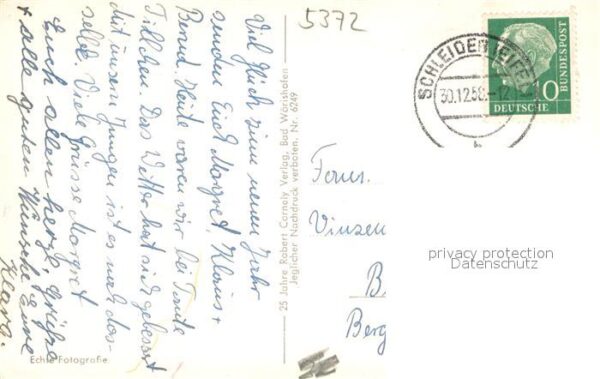 5372
SCHLEIDEN (EIFEL)
30.12.58.-12
b
10
DEUTSCHE
BUNDESPOST
Viel Glück zum neuen Jahr
senden Euch Margret, Klaus +
Bernd. Heute waren wir bei Tante
Tillchen. Das Wetter hat sich gebessert
mit unseren Jungen ist es noch das-
selbe. Viele Grüsse Margret
Euch allen herzl. Grüße
+ alle guten Wünsche Eure
Klara.
25 Jahre Robert Cornely Verlag, Bad Wörishofen
Jeglicher Nachdruck verboten. Nr. 6249
Fam.
Vinzen
B
Berg
privacy protection
Datenschutz
Echte Fotografie